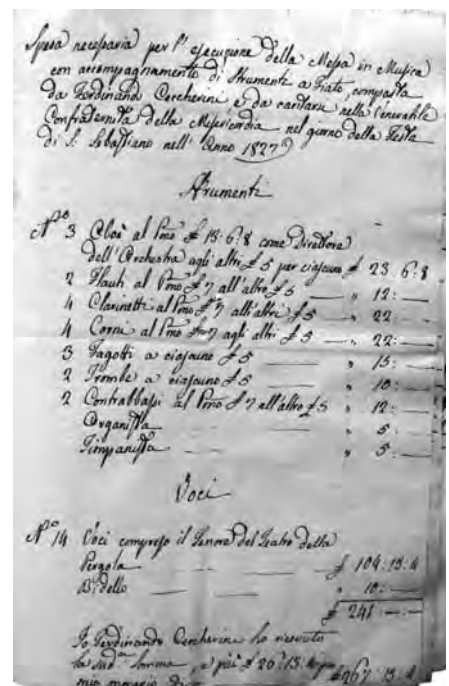 Spesa necessaria per l'esecuzione della Messa in Musica
con accompagnamento di Strumenti a Fiato, composta
da Ferdinando Ceccherini e da cantarsi nella Venerabile
Confraternita della Misericordia nel giorno della Festa
di S. Sebastiano nell'Anno 1827
Strumenti
N.° 3 Oboè al Pmo £ 13.6.8 come Direttore
dell'Orchestra agli altri £ 5 per ciascuno £ 23.6.8
2 Flauti al Pmo £ 7 all'altro £ 5 — " 12: —
4 Clarinetti al Pmo £ 7 agli altri £ 5 — " 22: —
4 Corni al Pmo £ 7 agli altri £ 5 — " 22: —
3 Fagotti a ciascuno £ 5 — " 15: —
2 Trombe a ciascuno £ 5 — " 10: —
2 Contrabbassi al Pmo £ 7 all'altro £ 5 " 12: —
Organista — " 5. —
Timpanista — " 5. —
Voci
N.° 14 Voci compreso il Tenore del Teatro della
Pergola — £ 104:13:4
Bidello — " 10: —
£ 241 : — : —
Io Ferdinando Ceccherini ho ricevuto
la sudda somma e più £ 26:13:4
mio onorario di £ 267:13:4